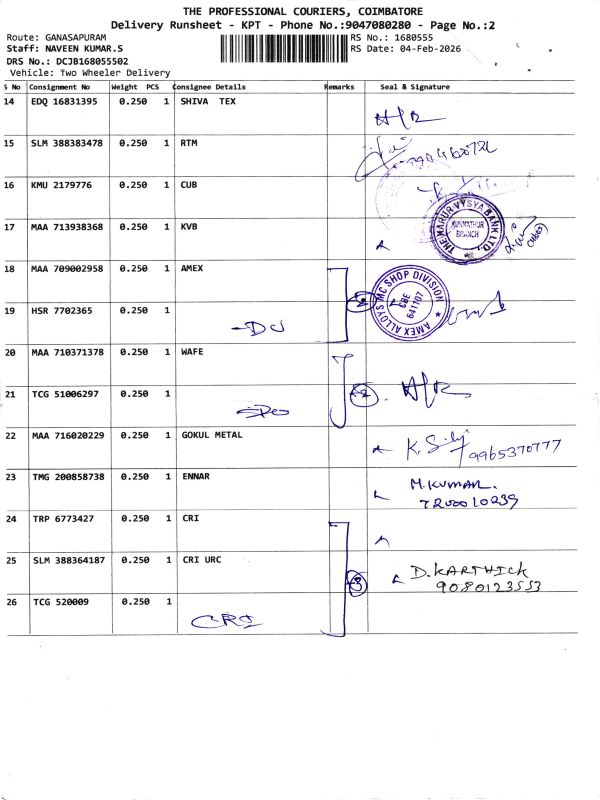 THE PROFESSIONAL COURIERS, COIMBATORE
Delivery Runsheet - KPT - Phone No.:9047080280 - Page No.:2
Route: GANASAPURAM RS No.: 1680555
Staff: NAVEEN KUMAR.S RS Date: 04-Feb-2026
DRS No.: DCJB168055502
Vehicle: Two Wheeler Delivery
S No Consignment No Weight PCS Consignee Details Remarks Seal & Signature
14 EDQ 16831395 0.250 1 SHIVA TEX
15 SLM 388383478 0.250 1 RTM
16 KMU 2179776 0.250 1 CUB
17 MAA 713938368 0.250 1 KVB
THE KARUR VYSYA BANK LTD.
BRANCH
18 MAA 709002958 0.250 1 AMEX
AMEX ALLOYS MC SHOP DIVISION
CBE
641107
19 HSR 7702365 0.250 1
-DO 2
20 MAA 710371378 0.250 1 WAFE
21 TCG 51006297 0.250 1
-DO 2
22 MAA 716020229 0.250 1 GOKUL METAL
9965370777
23 TMG 200858738 0.250 1 ENNAR
M.KUMAR.
7200010239
24 TRP 6773427 0.250 1 CRI
25 SLM 388364187 0.250 1 CRI URC
3 D.KARTHICK
9080123553
26 TCG 520009 0.250 1
CRI